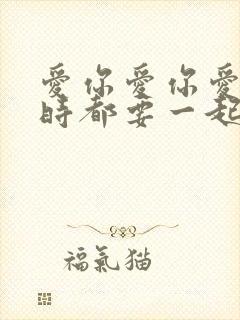 愛你愛你愛
時都要一起
福氣猫